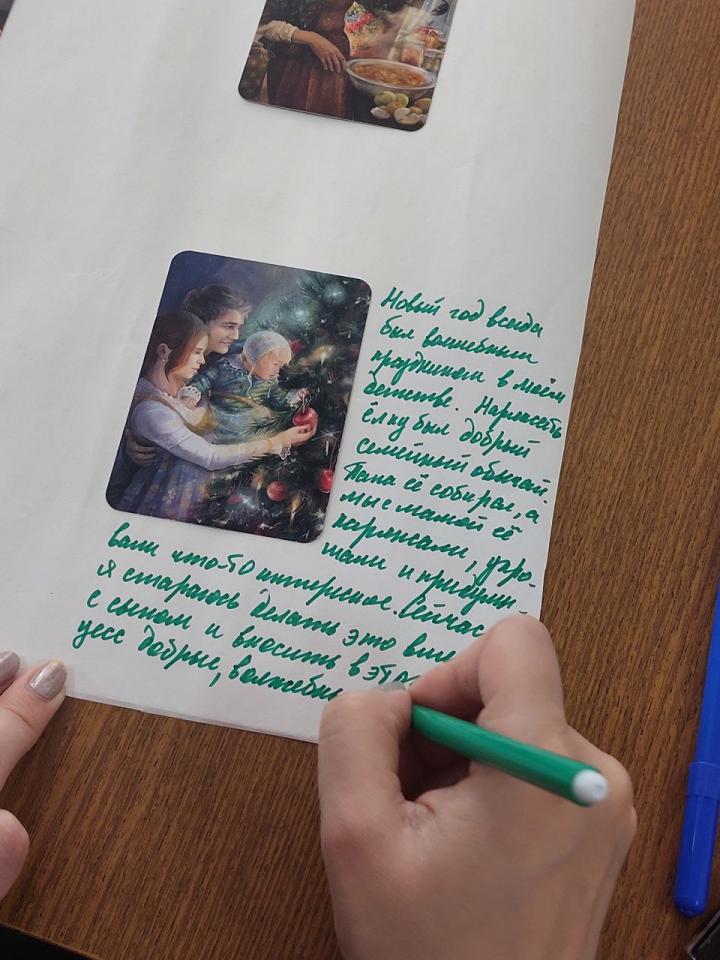 Новый год всегда
был волшебным
праздником в моём
детстве. Наряжать
ёлку был добрый
семейный обычай.
Папа её собирал, а
мы с мамой её
наряжали, укра-
шали и придумы-
вали что-то интересное. Сейчас
я стараюсь делать это вме
с сыном и вносить в этот
цесс добрые, волшебны